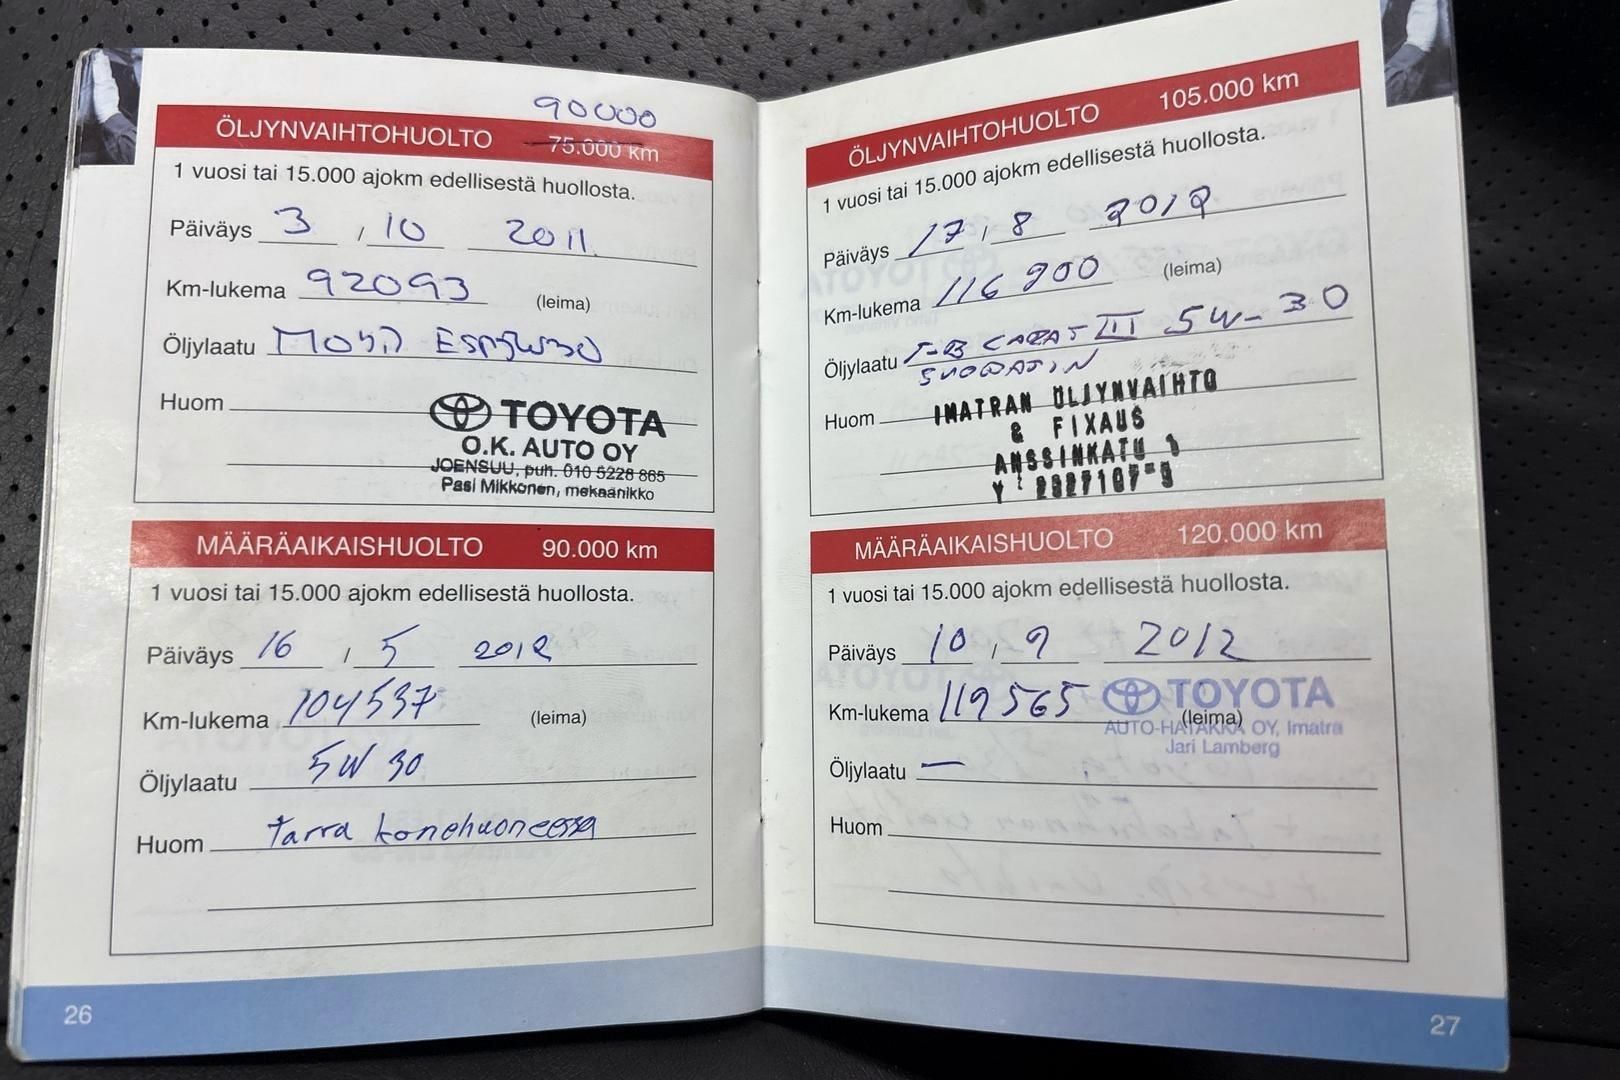 90000
ÖLJYNVAIHTOHUOLTO 75.000 km
1 vuosi tai 15.000 ajokm edellisestä huollosta.
Päiväys 3 / 10 2011
Km-lukema 92093 (leima)
Öljylaatu Mobil Esp 5W30
Huom
TOYOTA
O.K. AUTO OY
JOENSUU, puh. 010 5228 865
Pasi Mikkonen, mekaanikko
MÄÄRÄAIKAISHUOLTO 90.000 km
1 vuosi tai 15.000 ajokm edellisestä huollosta.
Päiväys 16 / 5 2012
Km-lukema 104537 (leima)
Öljylaatu 5W 30
Huom tarra konehuoneessa
26
ÖLJYNVAIHTOHUOLTO 105.000 km
1 vuosi tai 15.000 ajokm edellisestä huollosta.
Päiväys 17 / 8 2012
Km-lukema 116900 (leima)
Öljylaatu CARAT III 5W-30
SUODATIN
Huom
IMATRAN ÖLJYNVAIHTO
& FIXAUS
ANSSINKATU 1
Y
MÄÄRÄAIKAISHUOLTO 120.000 km
1 vuosi tai 15.000 ajokm edellisestä huollosta.
Päiväys 10 / 9 2012
Km-lukema 119565 (leima)
TOYOTA
AUTO-HATAKKA OY, Imatra
Jari Lamberg
Öljylaatu —
Huom
27